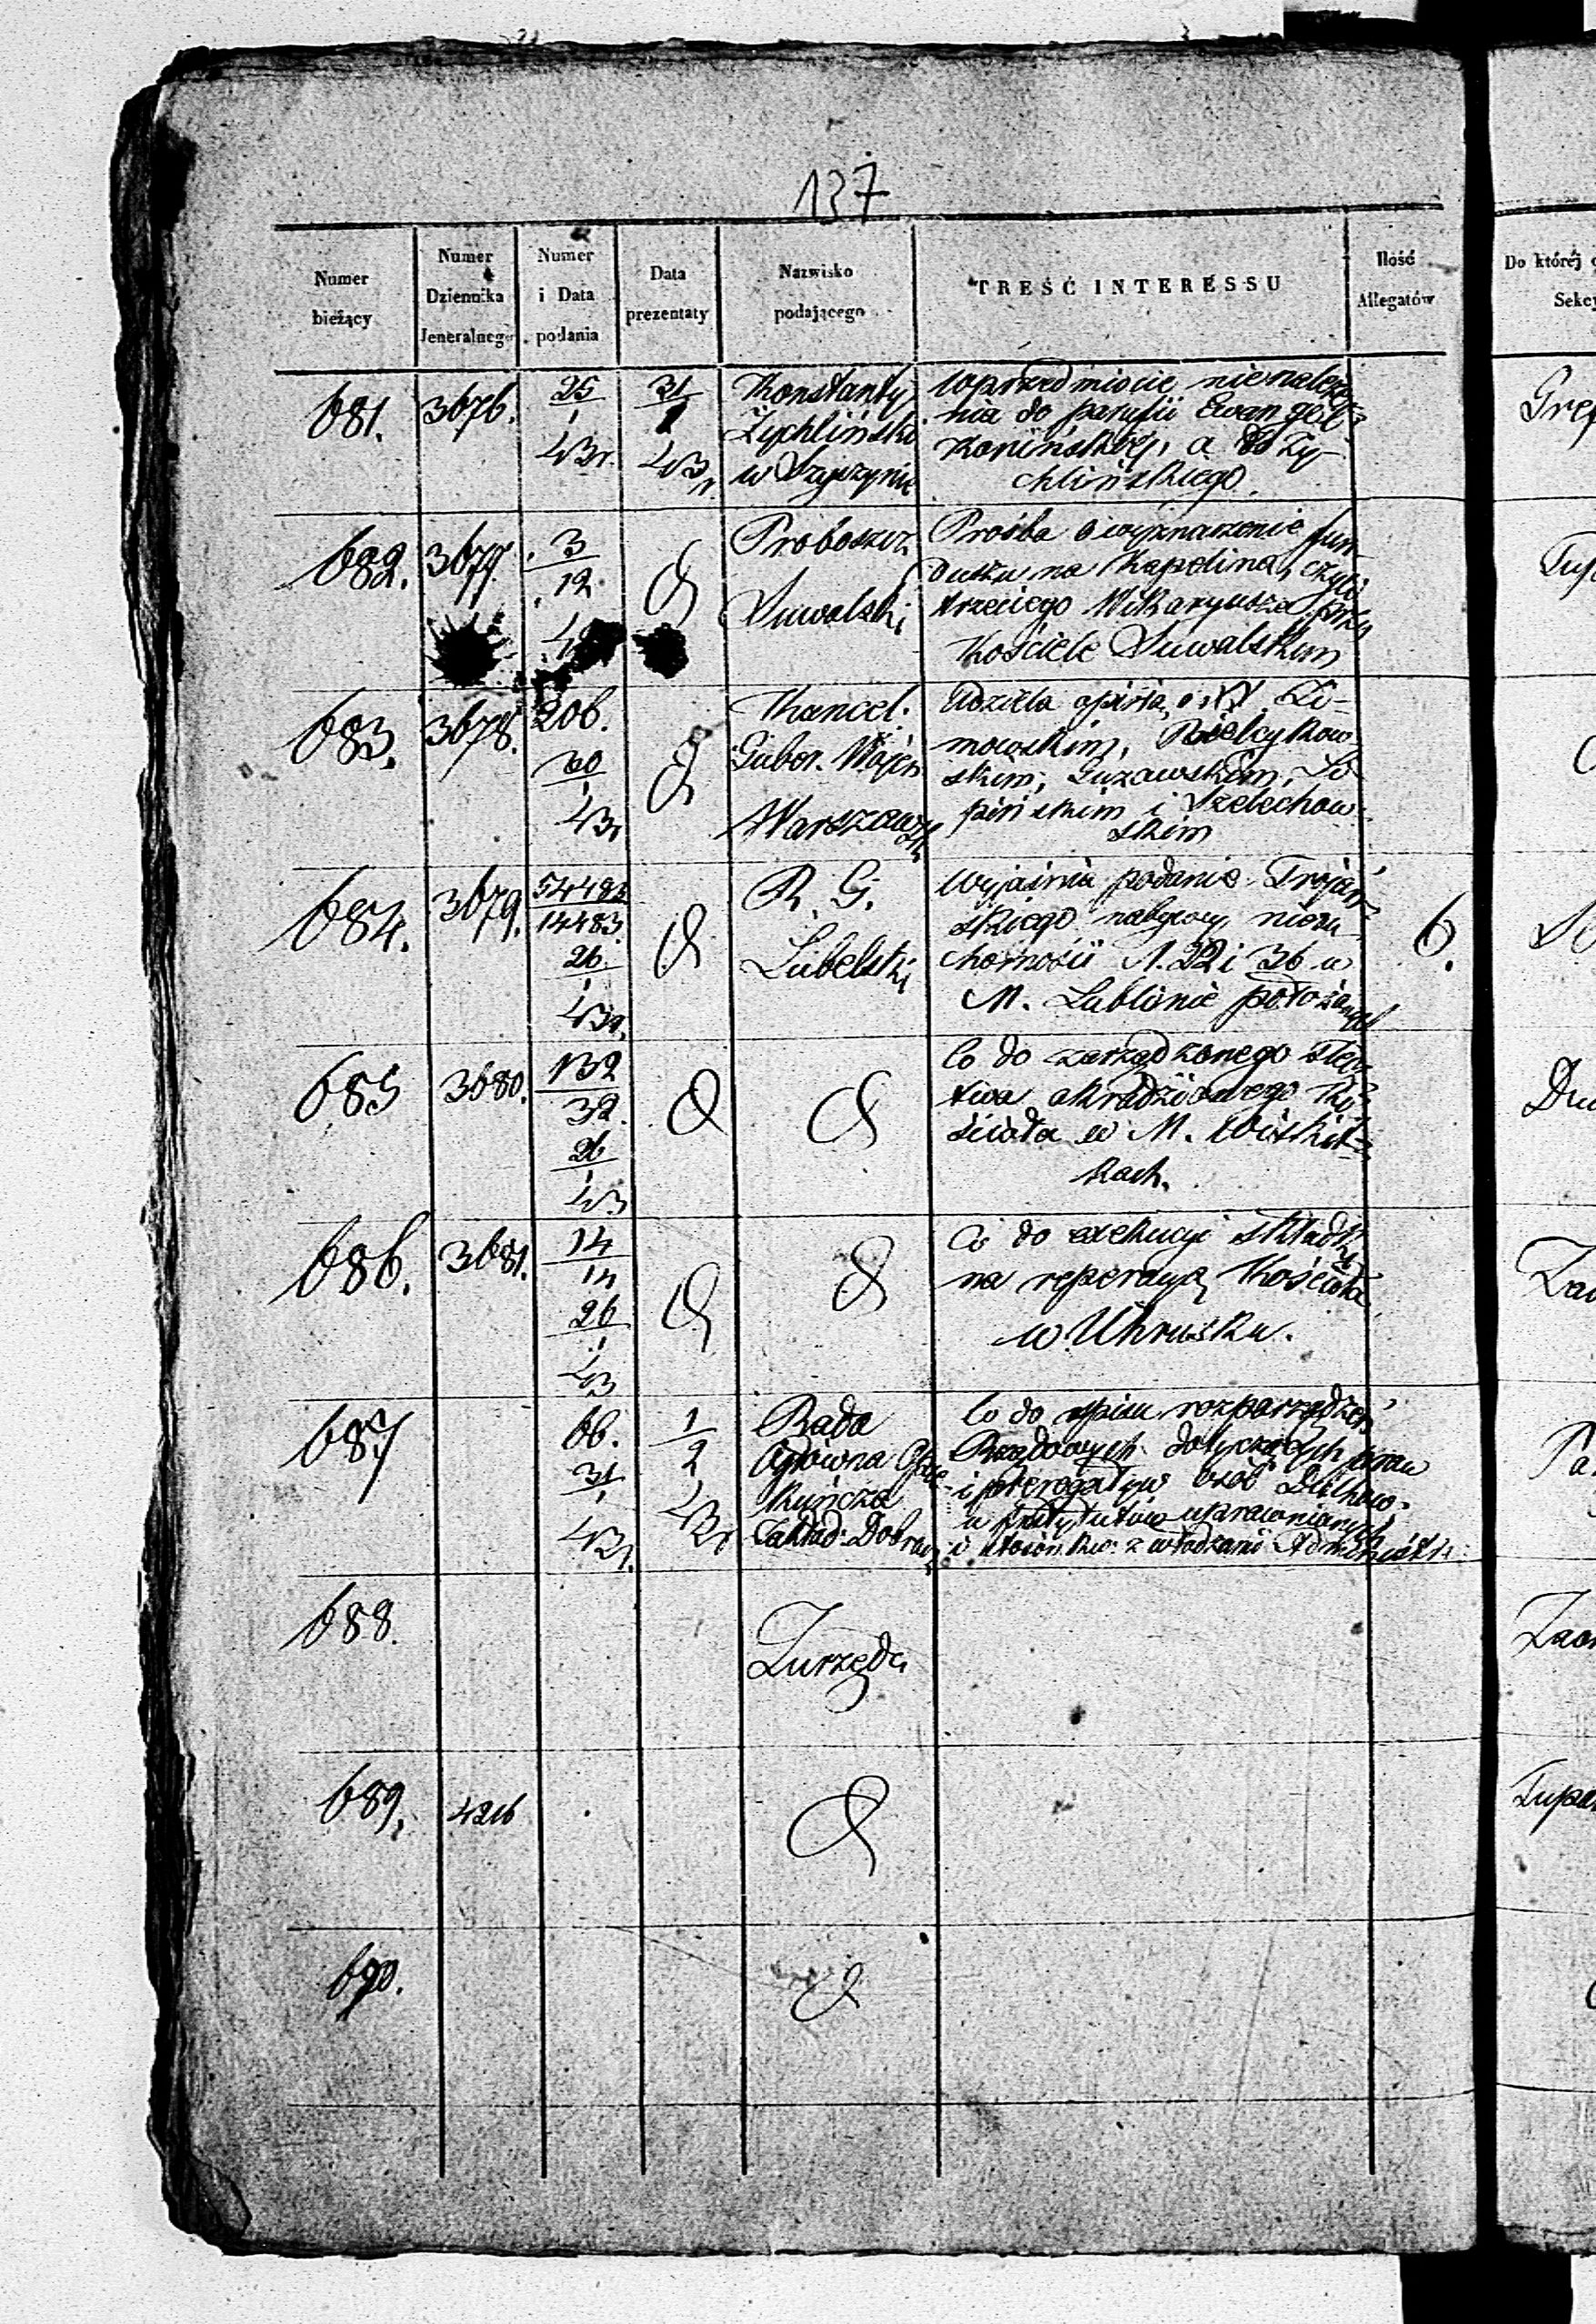 137
Numer bieżący
Numer Dziennika Jeneralnego
Numer i Data podania
Data prezentaty
Nazwisko podającego
TREŚĆ INTERESSU
Ilość Allegatów
Do której
681. 3676. 25/1 43r. 31/1 43r
Konstanty Żychliński w
W przedmiocie nienależe-
nia do parafii Ewangel:
Konińskiej, a do Ży-
chlińskiego
682. 3677. 3/12
Proboszcz Suwalski
Prośba o wyznaczenie fun-
duszu na Kapelina, czyli
trzeciego Wikaryusza przy
Kościele Suwalskim
683. 3678. 206. 30/1 43r
Kancel. Guber. Wojen Warszawsk
Udziela opinią o
mowskim,
skim, Guzawskim,
pińskim i Szelechow-
skim
684. 3679. 54483/14483. 26/1 43r.
R. G. Lubelski
Wyjaśnia podanie Trojań-
skiego nabywcy nieru-
chomości N. 22 i 36 w
M. Lublinie położonych
6.
685 3680. 132/32. 26/1 43
Co do zarządzonego śledz-
twa okradzionego Ko-
ścioła w M. Wiskit-
kach.
686. 3681. 14/14 26/1 43
Co do exekucyi składki
na reperacyą Kościoła
w Uhrusku.
687 66. 31/1 43r. 1/2 43r
Rada Główna Opie- kuńcza Zakład: Dobrocz
Co do spisu rozporządzeń
Rządowych dotyczących praw
i prerogatyw osób Duchow:
Instytutów uprawnionych
i stosunków z władzami Administr:
688.
Zurzędu
689. 4216
690.